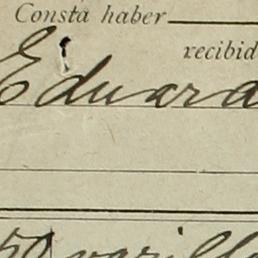 Consta haber
recibid
Eduard
50 varilla